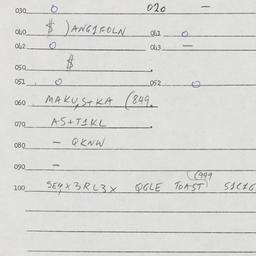 030 O 020 —
040 $ )ANG1FOLN 041 O
042 O 043 —
050 $ .
051 O 052 O
060 MAKU,S+KA (849.
070 AS+T1KL .
080 — GKNW
090 —
(999
100 SE4X3RL3X QGLE TOAST S1C1G